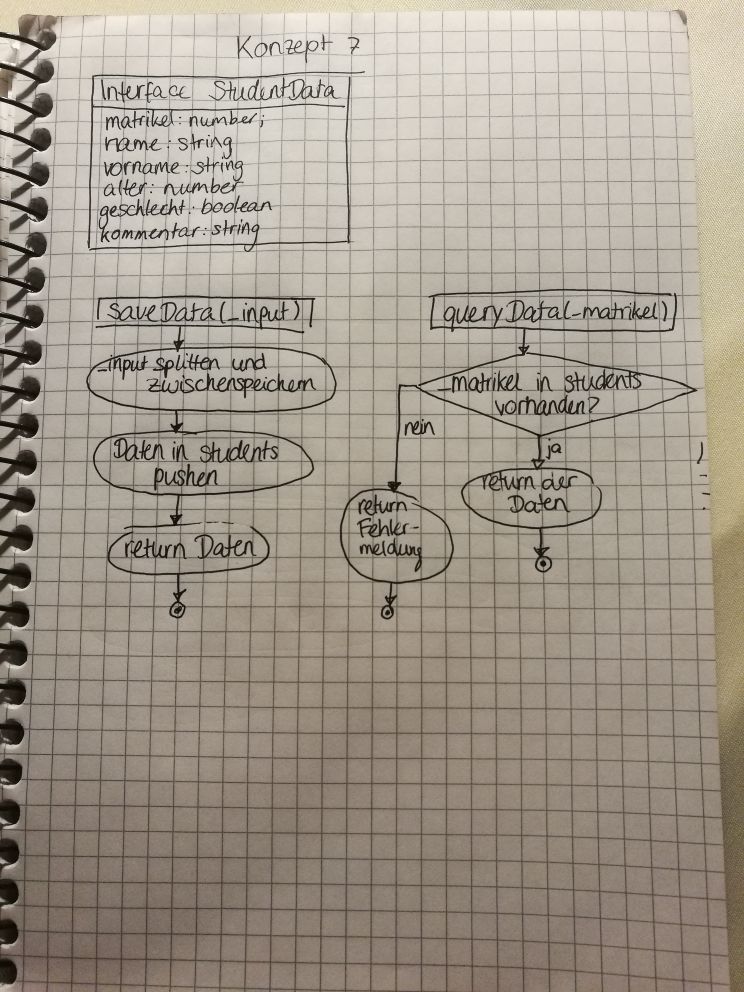 Konzept 7
Interface StudentData
matrikel: number;
name: string
vorname: string
alter: number
geschlecht: boolean
kommentar: string
saveData(_input)
_input splitten und
zwischenspeichern
Daten in students
pushen
return Daten
queryData(_matrikel)
_matrikel in students
vorhanden?
nein
ja
return
Fehler-
meldung
return der
Daten